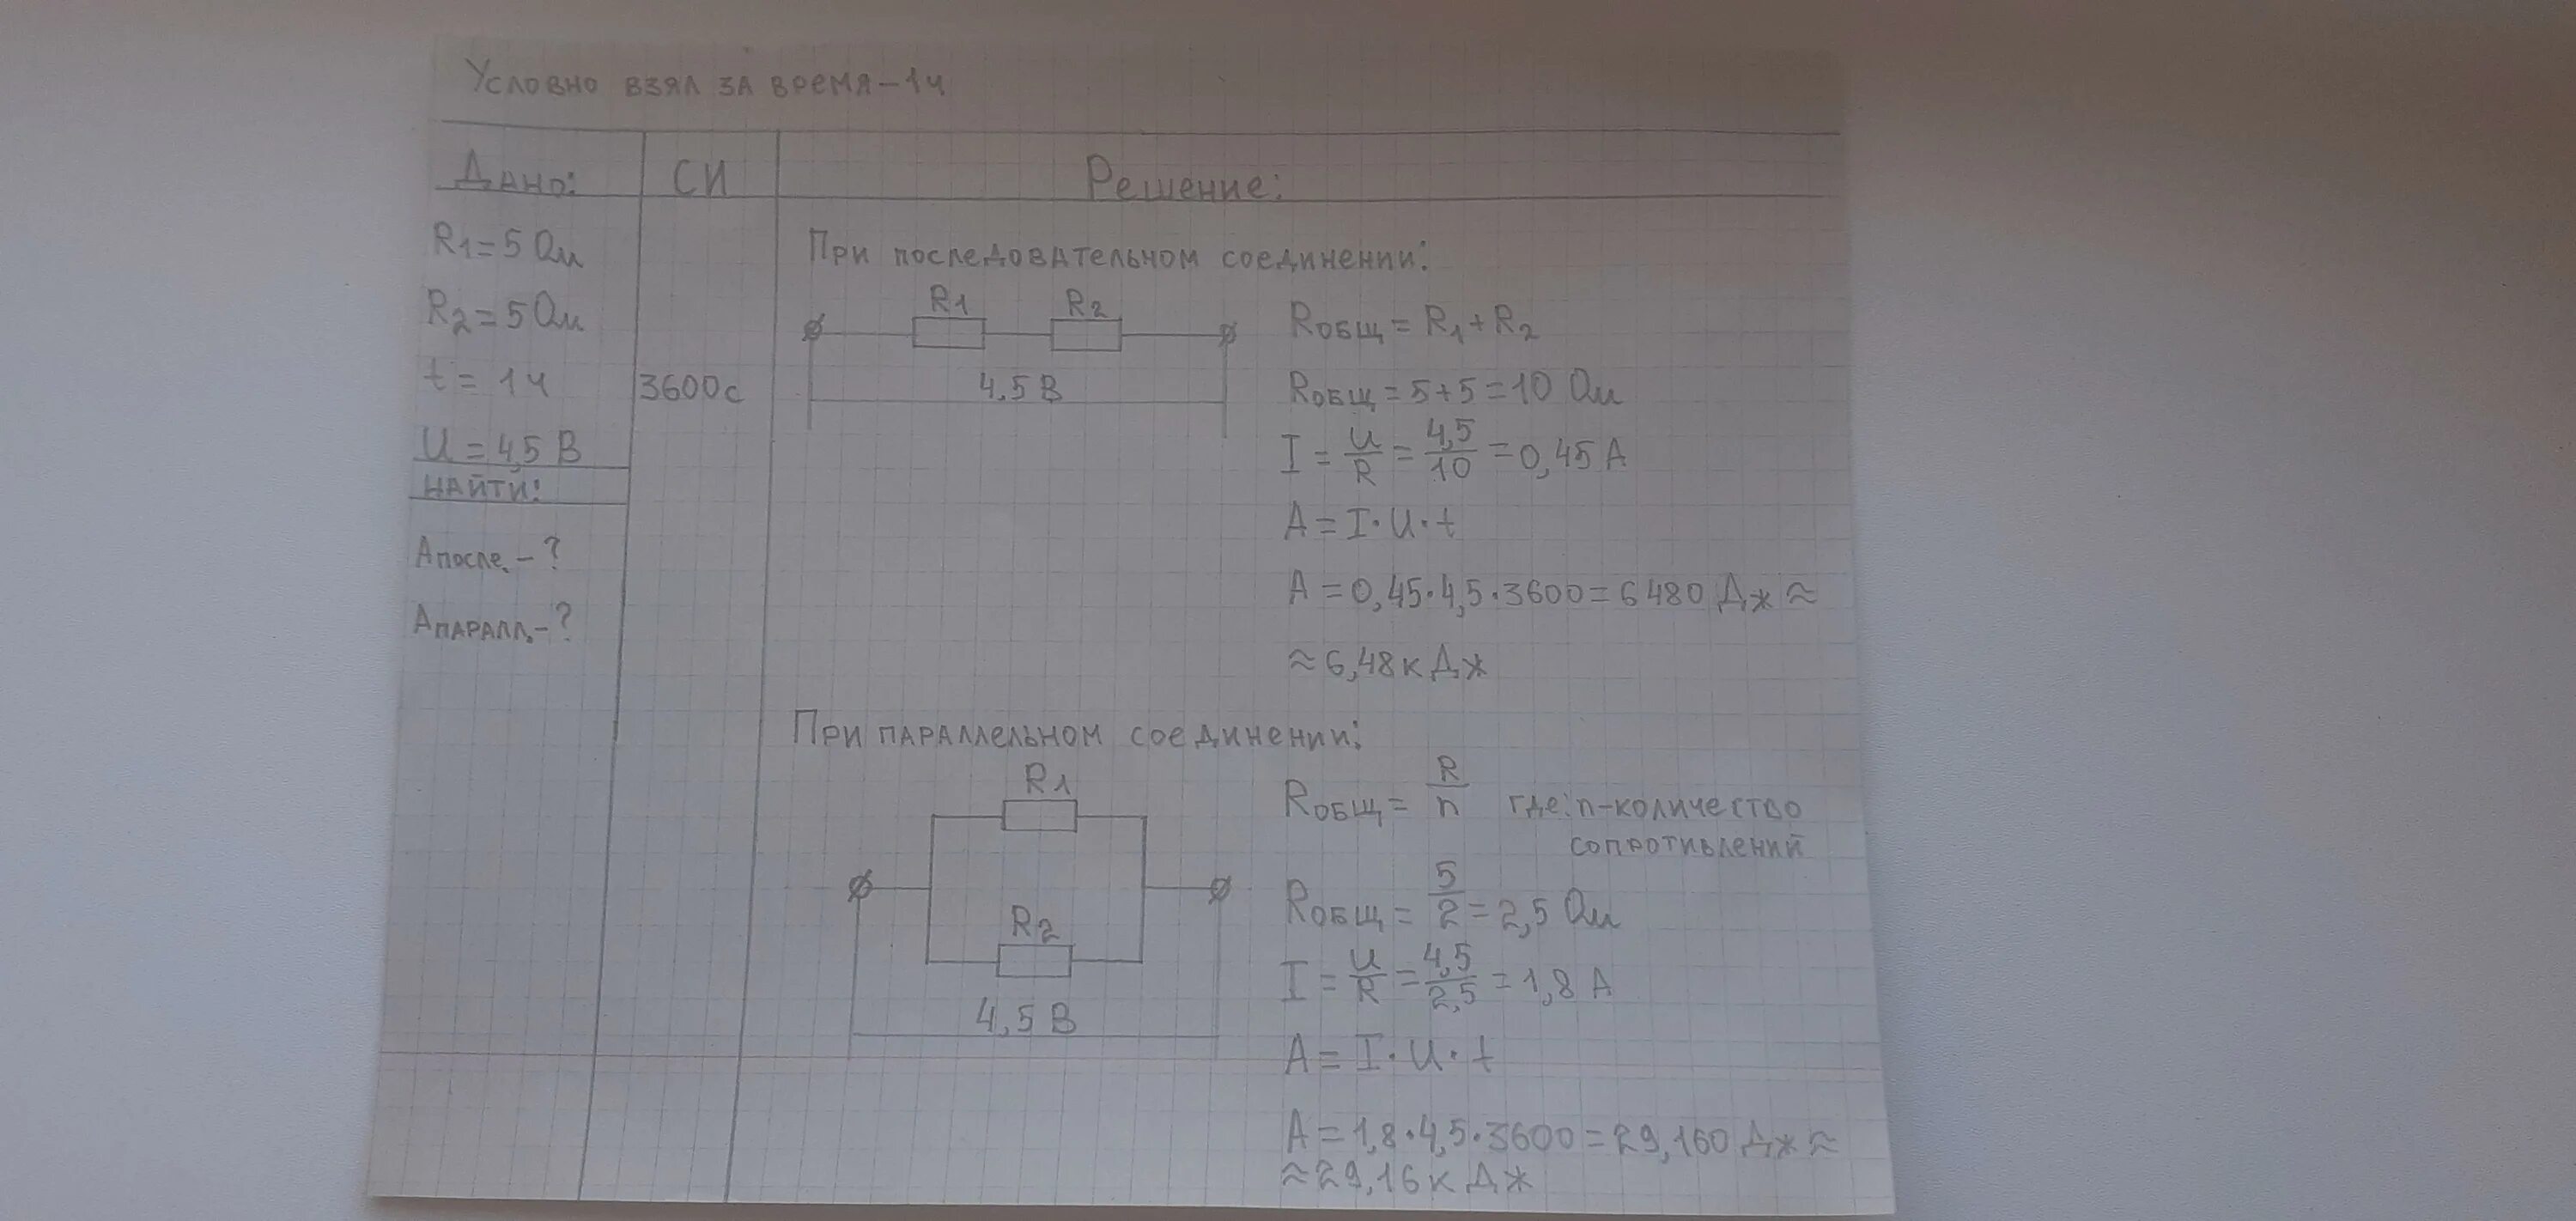 Условно взял за время-1ч
Дано:
СИ
Решение:
R1=5 Ом
R2=5 Ом
t= 1ч
3600с
U=4,5 В
НАЙТИ:
Aпосле.-?
Aпаралл.-?
При последовательном соединении:
R1 R2
4,5 В
Rобщ=R1+R2
Rобщ=5+5=10 Ом
I=U/R=4,5/10=0,45 А
A=I·U·t
A=0,45·4,5·3600=6480 Дж≈
≈6,48кДж
При параллельном соединении:
R1
R2
4,5 В
Rобщ=R/n где:n-количество
сопротивлений
Rобщ=5/2=2,5 Ом
I=U/R=4,5/2,5=1,8 А
A=I·U·t
A=1,8·4,5·3600=29,160 Дж≈
≈29,16кДж